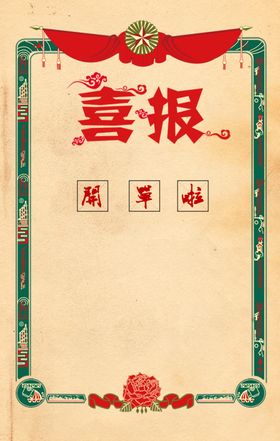 喜报
開單啦